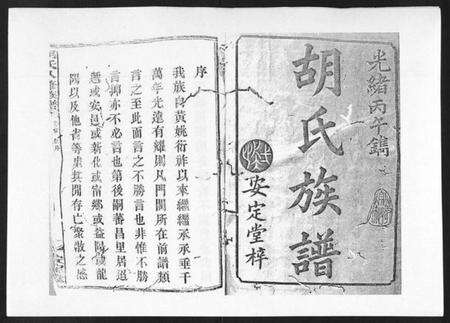 光緒丙午鐫
胡氏族譜
安定堂梓
序
我族自黃姚衍祚以來繼繼承承垂千
萬年光遠有耀則凡門閥所在前譜類
言之至此而言之不勝言也非惟不勝
言抑亦不必言也第後嗣蕃昌里居迥
或安邑或新化或甯鄉或益陽或龍
陽以及他省等處其間存亡聚散之